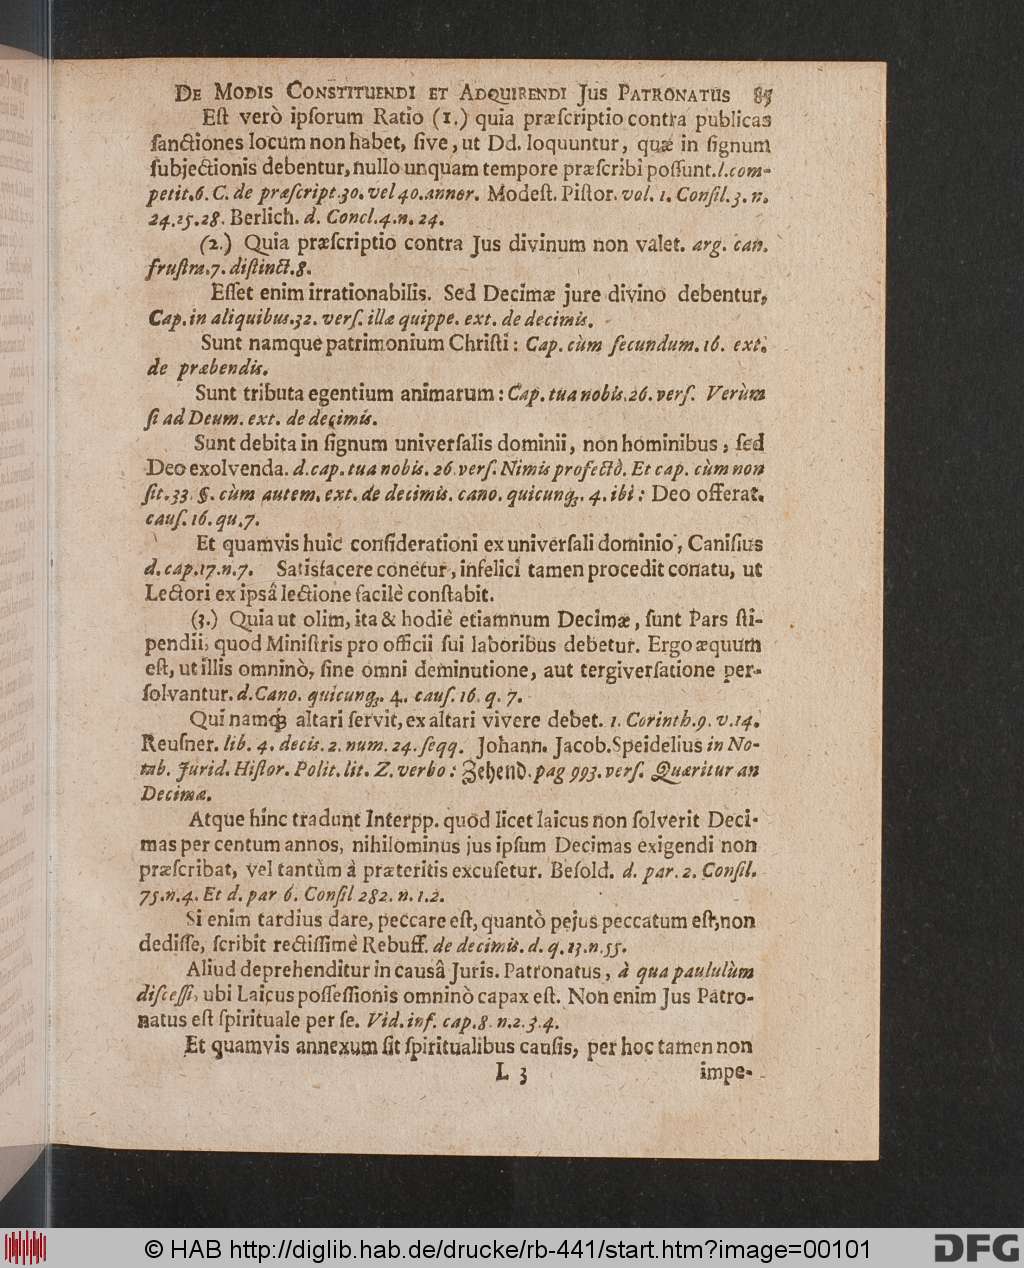 De Modis Constituendi et Adquirendi Jus Patronatus 85
Eſt verò ipſorum Ratio (1.) quia præſcriptio contra publicas
ſanctiones locum non habet, ſive, ut Dd. loquuntur, quæ in ſignum
ſubjectionis debentur, nullo unquam tempore præſcribi poſſunt. l. com-
petit. 6. C. de præſcript. 30. vel 40. annor. Modeſt. Piſtor. vol. 1. Conſil. 3. n.
24. 25. 28. Berlich. d. Concl. 4. n. 24.
(2.) Quia præſcriptio contra Jus divinum non valet. arg. can.
fruſtra. 7. diſtinct. 8.
Eſſet enim irrationabilis. Sed Decimæ jure divino debentur,
Cap. in aliquibus. 32. verſ. illæ quippe. ext. de decimis.
Sunt namque patrimonium Chriſti: Cap. cùm ſecundum. 16. ext.
de præbendis.
Sunt tributa egentium animarum: Cap. tua nobis. 26. verſ. Verùm
ſi ad Deum. ext. de decimis.
Sunt debita in ſignum univerſalis dominii, non hominibus, ſed
Deo exolvenda. d. cap. tua nobis. 26. verſ. Nimis profectò. Et cap. cùm non
ſit. 33. §. cùm autem. ext. de decimis. cano. quicunq;. 4. ibi: Deo offerat.
cauſ. 16. qu. 7.
Et quamvis huic conſiderationi ex univerſali dominio, Caniſius
d. cap. 17. n. 7. Satisfacere conetur, infelici tamen procedit conatu, ut
Lectori ex ipsâ lectione facilè conſtabit.
(3.) Quia ut olim, ita & hodiè etiamnum Decimæ, ſunt Pars ſti-
pendii, quod Miniſtris pro officii ſui laboribus debetur. Ergo æquum
eſt, ut illis omninò, ſine omni deminutione, aut tergiverſatione per-
ſolvantur. d. Cano. quicunq;. 4. cauſ. 16. q. 7.
Qui namq; altari ſervit, ex altari vivere debet. 1. Corinth. 9. v. 14.
Reuſner. lib. 4. decis. 2. num. 24. ſeqq. Johann. Jacob. Speidelius in No-
tab. Jurid. Hiſtor. Polit. lit. Z. verbo: Zehend. pag 993. verſ. Quæritur an
Decimæ.
Atque hinc tradunt Interpp. quòd licet laicus non ſolverit Deci-
mas per centum annos, nihilominus jus ipſum Decimas exigendi non
præſcribat, vel tantùm à præteritis excuſetur. Beſold. d. par. 2. Conſil.
75. n. 4. Et d. par 6. Conſil 282. n. 1. 2.
Si enim tardius dare, peccare eſt, quantò pejus peccatum eſt, non
dediſſe, ſcribit rectiſſimè Rebuff. de decimis. d. q. 13. n. 55.
Aliud deprehenditur in causâ Juris. Patronatus, à qua paululùm
diſceſſi, ubi Laicus poſſeſſionis omninò capax eſt. Non enim Jus Patro-
natus eſt ſpirituale per ſe. Vid. inf. cap. 8. n. 2. 3. 4.
Et quamvis annexum ſit ſpiritualibus cauſis, per hoc tamen non
L 3 impe-
© HAB http://diglib.hab.de/drucke/rb-441/start.htm?image=00101 DFG